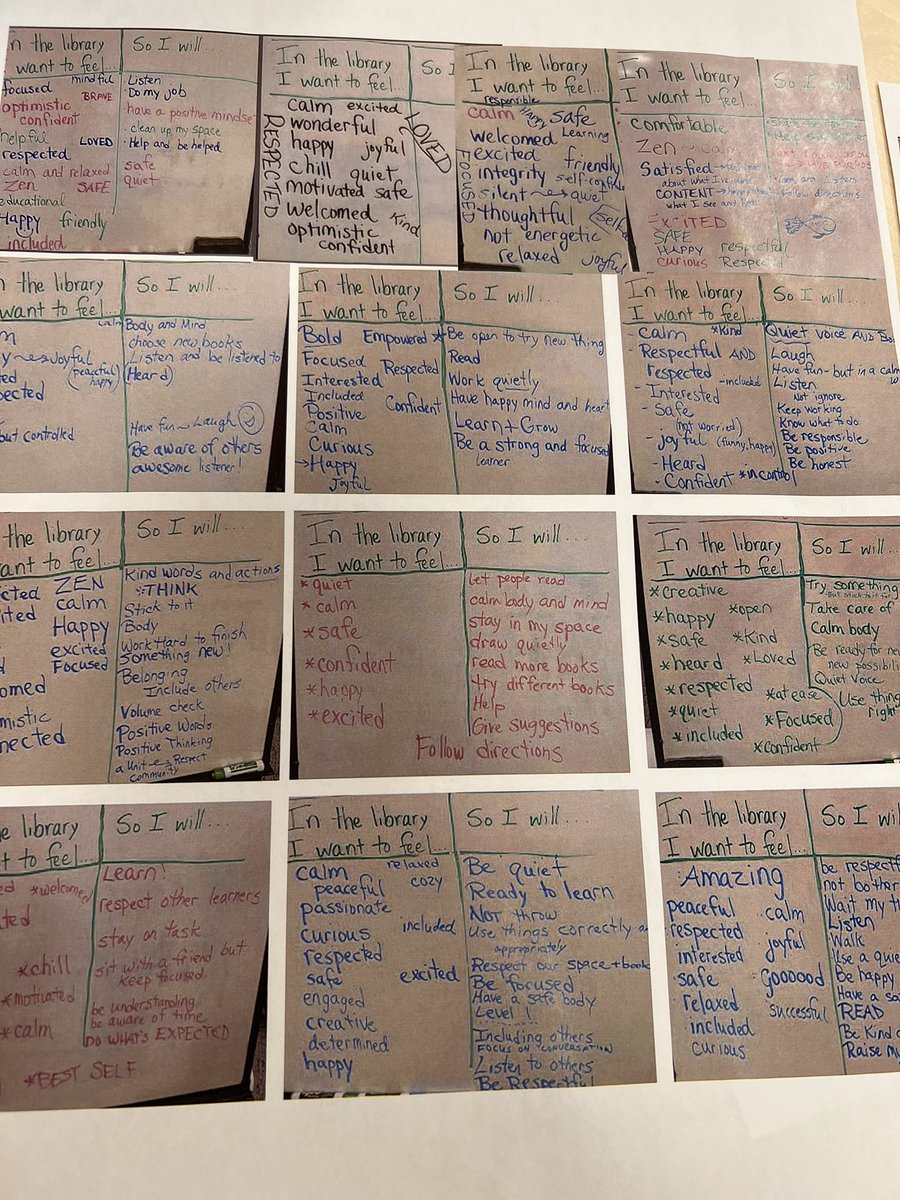 n the library
want to feel...
So I will....
focused mindful
BRAVE
optimistic
confident
helpful LOVED
respected
calm and relaxed
Zen SAFE
educational
Happy friendly
included
· Listen
· Do my job
· have a positive mindse
· clean up my space
· Help and be helped
safe
quiet
In the library
I want to feel...
So I
calm excited
wonderful
happy joyful
chill quiet
motivated safe
welcomed Kind
optimistic
confident
RESPECTED
LOVED
In the library
I want to feel...
responsible
calm HAPPY safe
welcomed Learning
excited friendly
integrity self-confid
silent → quiet
thoughtful
not energetic
relaxed joyful
FOCUSED
In the library
I want to feel...
So I will....
comfortable
Zen
Satisfied
about what I've
CONTENT
what I see and
EXCITED
SAFE
HAPPY respectful
curious Respect
Look and Listen
Follow directions
n the library
want to feel...
So I will....
calm
Joyful
(peaceful
happy)
pected
but controlled
Body and Mind
choose new books
Listen and be listened to
(Heard)
Have fun ~ Laugh
Be aware of others
awesome listener!
In the library
I want to feel...
So I will....
Bold Empowered *
Focused Respected
Interested
Included
Positive Confident
calm
Curious
→ Happy
Joyful
Be open to try new thing
Read
Work quietly
Have happy mind and heart
Learn + Grow
Be a strong and focused
learner
In the library
I want to feel...
So I will....
- Calm *Kind
- Respectful AND
respected - included
- Interested
- Safe
(not worried)
- joyful (funny, happy)
- Heard
- Confident *in control
Quiet voice AND Bo
Laugh
Have fun - but in a calm
Listen
Not ignore
Keep working
Know what to do
Be responsible
Be positive
Be honest
the library
ant to feel...
So I will....
cted ZEN
ited calm
Happy
excited
Focused
omed
mistic
nected
Kind words and actions
THINK
Stick to it
Body
Work Hard to finish
Something new!
Belonging
Include others
Volume check
Positive Words
Positive Thinking
a Unit → Respect
Community
In the library
I want to feel...
So I will....
* quiet
* calm
* safe
* confident
* happy
* excited
Let people read
calm body and mind
stay in my space
draw quietly
read more books
try different books
Help
Give suggestions
Follow directions
In the library
I want to feel...
So I will...
* creative
* happy * open
* safe * Kind
* heard * Loved
* respected * at ease
* quiet * Focused
* included
* confident
Try something
But stick to it
Take care of
Calm body
Be ready for ne
new possibili
Quiet Voice
Use thing
right
e library
t to feel...
So I will....
ed *welcomed
ated
*chill
*motivated
*calm
*BEST SELF
Learn!
respect other learners
stay on task
sit with a friend but
keep focused
be understanding
be aware of time
DO WHAT'S EXPECTED
In the library
I want to feel...
So I will....
calm relaxed
peaceful cozy
passionate
curious included
respected
safe excited
engaged
creative
determined
happy
Be quiet
Ready to learn
Not throw
Use things correctly a
appropriately
Respect our space + book
Be focused
Have a safe body
Level 1
Including others
FOCUS ON CONVERSATION)
Listen to others
Be Respectful
In the library
I want to feel...
So I will
Amazing
peaceful calm
respected
interested joyful
safe Goooood
relaxed
included successful
curious
be respectf
not bother
Wait my t
Listen
Walk
Use a quie
Be happy
Have a sa
READ
Be Kind
Raise m